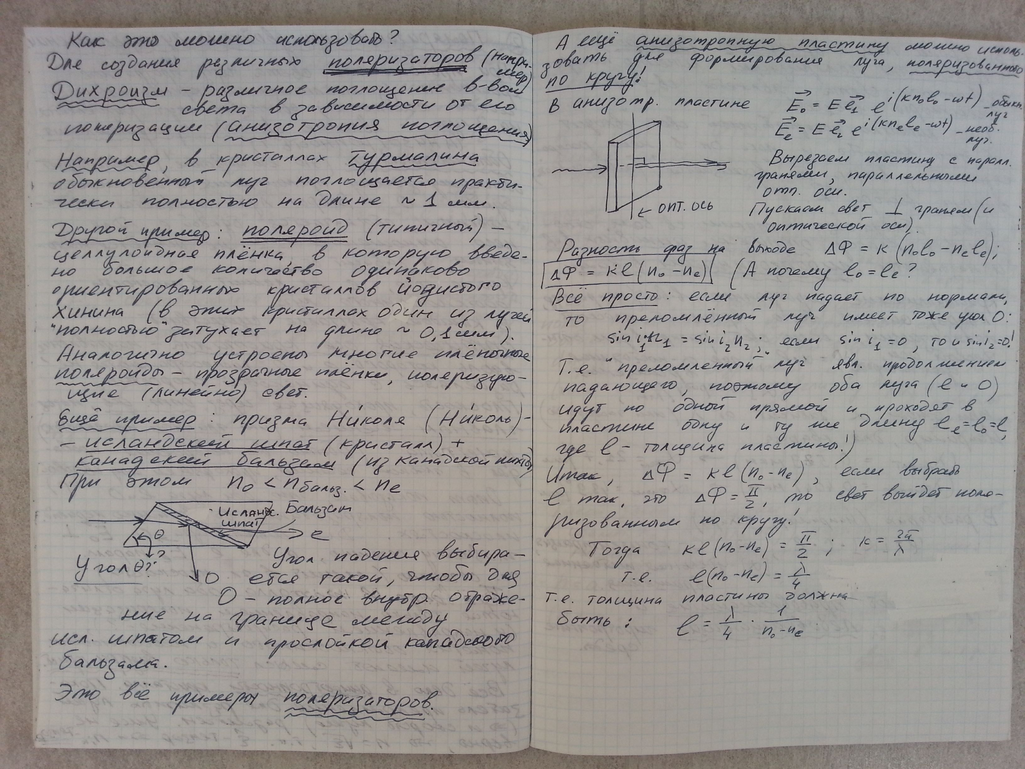 Как это можно использовать?
Для создания различных поляризаторов (напри-
мер)
Дихроизм – различное поглощение в-вом
света в зависимости от его
поляризации (анизотропия поглощения)
Например, в кристаллах Турмалина
обыкновенный луч поглощается практи-
чески полностью на длине ~ 1 мм.
Другой пример: поляроид (типичный) –
целлулоидная плёнка в которую введе-
но большое количество одинаково
ориентированных кристаллов йодистого
хинина (в этих кристаллах один из лучей
"полностью" затухает на длине ~ 0,1 мм).
Аналогично устроены многие плёночные
поляроиды – прозрачные плёнки, поляризую-
щие (линейно) свет.
Ещё пример: призма Ни́коля (Ни́коль) –
– исландский шпат (кристалл) +
канадский бальзам (из канадской пихты)
При этом n₀ < nбальз. < nе
Исланд. Бальзам
шпат
θ
e
?
Угол θ?
О
Угол падения выбира-
ется такой, чтобы для
О – полное внутр. отраже-
ние на границе между
исл. шпатом и прослойкой канадского
бальзама.
Это всё примеры поляризаторов.
А ещё анизотропную пластину можно исполь-
зовать для формирования луча, поляризованного
по кругу!
В анизотр. пластине
E⃗₀ = E e⃗₁ e^{i(kn₀l₀ – ωt)} – обыкн. луч
E⃗е = E e⃗₂ e^{i(knеlе – ωt)} – необ. луч.
Вырезаем пластину с паралл.
гранями, параллельными
опт. оси.
← опт. ось
Пускаем свет ⊥ граням (и
оптической оси)
Разность фаз на выходе ΔФ = k (n₀l₀ – nеlе);
ΔФ = kl (n₀ – nе) (А почему l₀ = lе?
Всё просто: если луч падает по нормали,
то преломлённый луч имеет тоже угол 0:
sin i₁ n₁ = sin i₂ n₂; если sin i₁ = 0, то и sin i₂ = 0!
Т.е. преломленный луч явл. продолжением
падающего, поэтому оба луча (e и О)
идут по одной прямой и проходят в
пластине одну и ту же длину lе = l₀ = l,
где l – толщина пластины!)
Итак, ΔФ = kl (n₀ – nе), если выбрать
l так, что ΔФ = π/2, то свет выйдет поля-
ризованным по кругу!
Тогда kl (n₀ – nе) = π/2; k = 2π/λ
т.е. l (n₀ – nе) = λ/4
т.е. толщина пластины должна
быть: l = λ/4 · 1/(n₀ – nе)